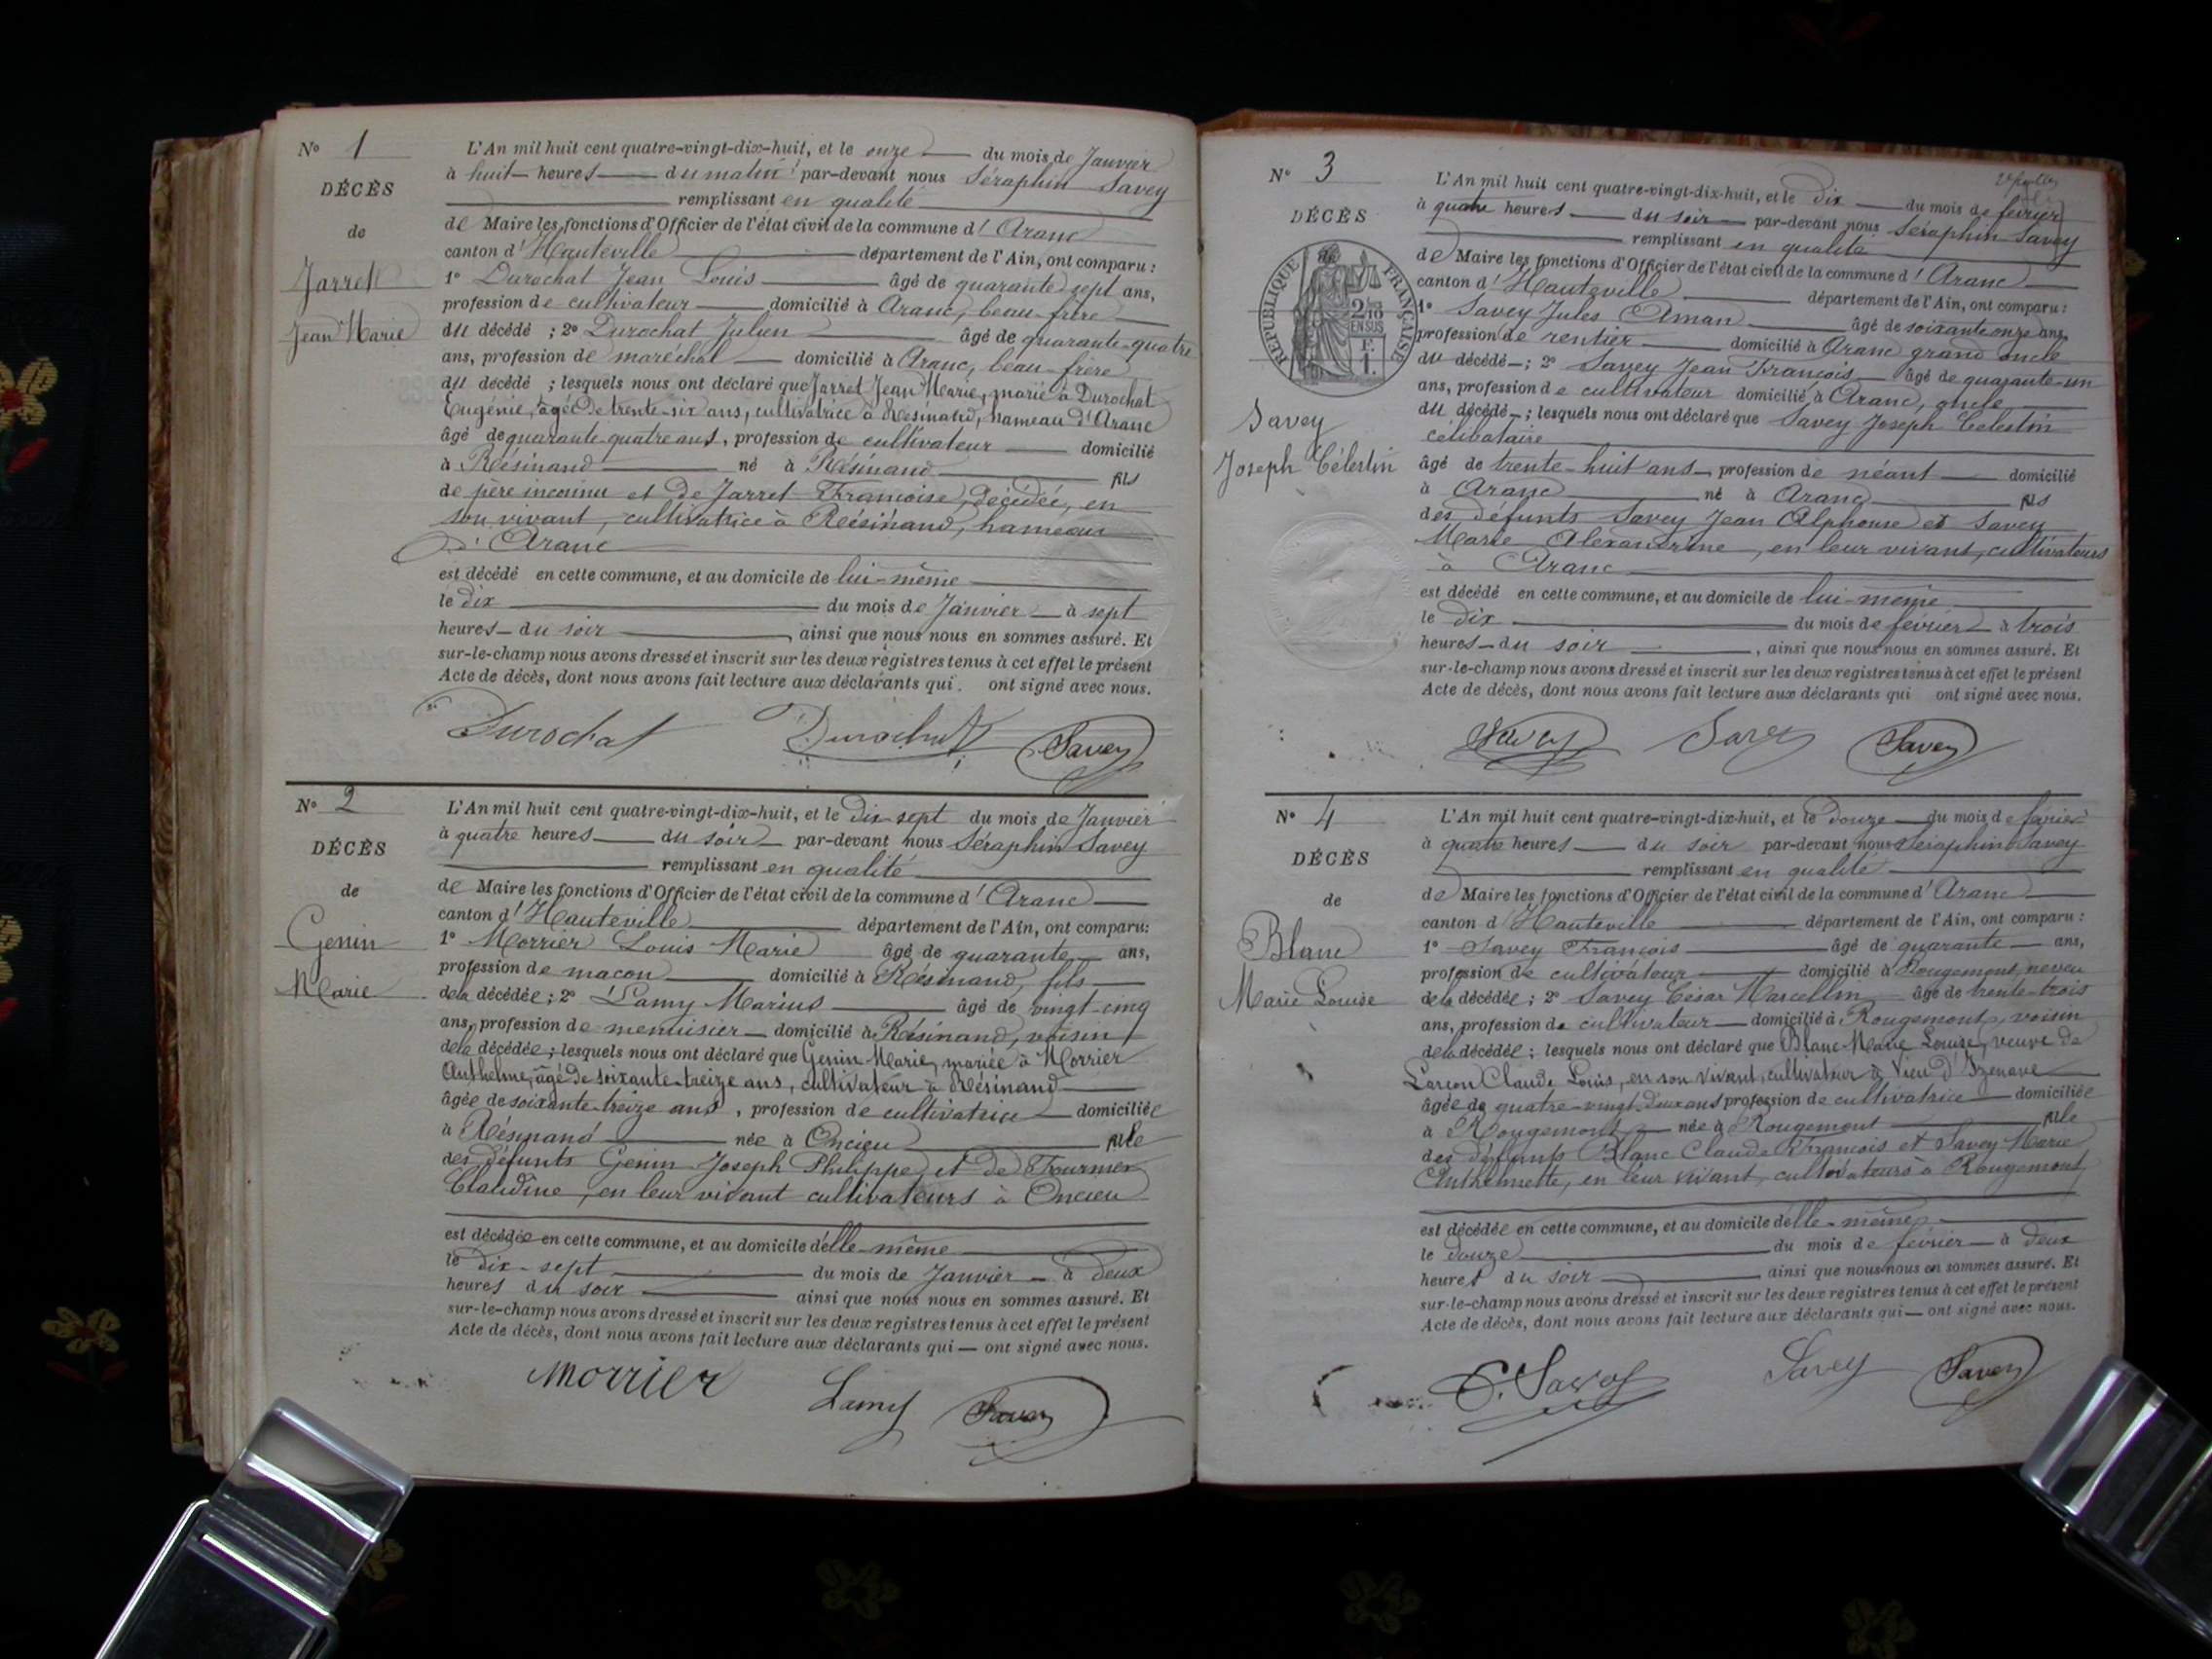 N° 1
DÉCÈS
de
Jarret
Jean Marie
L'An mil huit cent quatre-vingt-dix-huit, et le onze du mois de Janvier
à huit heures du matin par-devant nous Séraphin Savey
remplissant en qualité
de Maire les fonctions d'Officier de l'état civil de la commune d'Aranc
canton d'Hauteville département de l'Ain, ont comparu :
1° Durochat Jean Louis âgé de quarante sept ans,
profession de cultivateur domicilié à Aranc, beau-frère
du décédé ; 2° Durochat Julien âgé de quarante-quatre
ans, profession de maréchal domicilié à Aranc, beau-frère
du décédé ; lesquels nous ont déclaré que Jarret Jean Marie, marié à Durochat
Eugénie, âgée de trente-six ans, cultivatrice à Résinand, hameau d'Aranc
âgé de quarante-quatre ans, profession de cultivateur domicilié
à Résinand né à Résinand fils
de père inconnu et de Jarret Françoise, décédée, en
son vivant, cultivatrice à Résinand, hameau
d'Aranc
est décédé en cette commune, et au domicile de lui-même
le dix du mois de Janvier à sept
heures du soir, ainsi que nous nous en sommes assuré. Et
sur-le-champ nous avons dressé et inscrit sur les deux registres tenus à cet effet le présent
Acte de décès, dont nous avons fait lecture aux déclarants qui ont signé avec nous.
Durochat Durochat Savey
N° 2
DÉCÈS
de
Genin
Marie
L'An mil huit cent quatre-vingt-dix-huit, et le dix-sept du mois de Janvier
à quatre heures du soir par-devant nous Séraphin Savey
remplissant en qualité
de Maire les fonctions d'Officier de l'état civil de la commune d'Aranc
canton d'Hauteville département de l'Ain, ont comparu :
1° Morrier Louis Marie âgé de quarante ans,
profession de maçon domicilié à Résinand, fils
de la décédée ; 2° Lamy Marius âgé de vingt-cinq
ans, profession de menuisier domicilié à Résinand, voisin
de la décédée ; lesquels nous ont déclaré que Genin Marie, mariée à Morrier
Anthelme, âgé de soixante-treize ans, cultivateur à Résinand
âgée de soixante-treize ans, profession de cultivatrice domiciliée
à Résinand née à Oncieu fille
des défunts Genin Joseph Philippe et de Fournier
Claudine, en leur vivant cultivateurs à Oncieu
est décédée en cette commune, et au domicile d'elle-même
le dix-sept du mois de Janvier à deux
heures du soir ainsi que nous nous en sommes assuré. Et
sur-le-champ nous avons dressé et inscrit sur les deux registres tenus à cet effet le présent
Acte de décès, dont nous avons fait lecture aux déclarants qui — ont signé avec nous.
Morrier Lamy Savey
N° 3
DÉCÈS
RÉPUBLIQUE FRANÇAISE
2/10 EN SUS
F. 1.
Savey
Joseph Célestin
L'An mil huit cent quatre-vingt-dix-huit, et le dix du mois de février
à quatre heures du soir par-devant nous Séraphin Savey
remplissant en qualité
de Maire les fonctions d'Officier de l'état civil de la commune d'Aranc
canton d'Hauteville département de l'Ain, ont comparu :
1° Savey Jules Aman âgé de soixante onze ans,
profession de rentier domicilié à Aranc grand oncle
du décédé ; 2° Savey Jean François âgé de quarante-un
ans, profession de cultivateur domicilié à Aranc, oncle
du décédé ; lesquels nous ont déclaré que Savey Joseph Celestin
célibataire
âgé de trente-huit ans, profession de néant domicilié
à Aranc né à Aranc fils
des défunts Savey Jean Alphonse et Savey
Marie Alexandrine, en leur vivant, cultivateurs
à Aranc
est décédé en cette commune, et au domicile de lui-même
le dix du mois de février à trois
heures du soir, ainsi que nous nous en sommes assuré. Et
sur-le-champ nous avons dressé et inscrit sur les deux registres tenus à cet effet le présent
Acte de décès, dont nous avons fait lecture aux déclarants qui ont signé avec nous.
Savey Savey Savey
N° 4
DÉCÈS
de
Blanc
Marie Louise
L'An mil huit cent quatre-vingt-dix-huit, et le douze du mois de février
à quatre heures du soir par-devant nous Séraphin Savey
remplissant en qualité
de Maire les fonctions d'Officier de l'état civil de la commune d'Aranc
canton d'Hauteville département de l'Ain, ont comparu :
1° Savey François âgé de quarante ans,
profession de cultivateur domicilié à Rougemont, neveu
de la décédée ; 2° Savey César Marcellin âgé de trente-trois
ans, profession de cultivateur domicilié à Rougemont, voisin
de la décédée ; lesquels nous ont déclaré que Blanc Marie Louise, veuve de
Claude Louis, en son vivant, cultivateur à Vieu d'Izenave
âgée de quatre-vingt-deux ans profession de cultivatrice domiciliée
à Rougemont née à Rougemont fille
des défunts Blanc Claude François et Savey Marie
Anthelmette, en leur vivant, cultivateurs à Rougemont
est décédée en cette commune, et au domicile d'elle-même
le douze du mois de février à deux
heures du soir ainsi que nous nous en sommes assuré. Et
sur-le-champ nous avons dressé et inscrit sur les deux registres tenus à cet effet le présent
Acte de décès, dont nous avons fait lecture aux déclarants qui — ont signé avec nous.
C. Savey Savey Savey